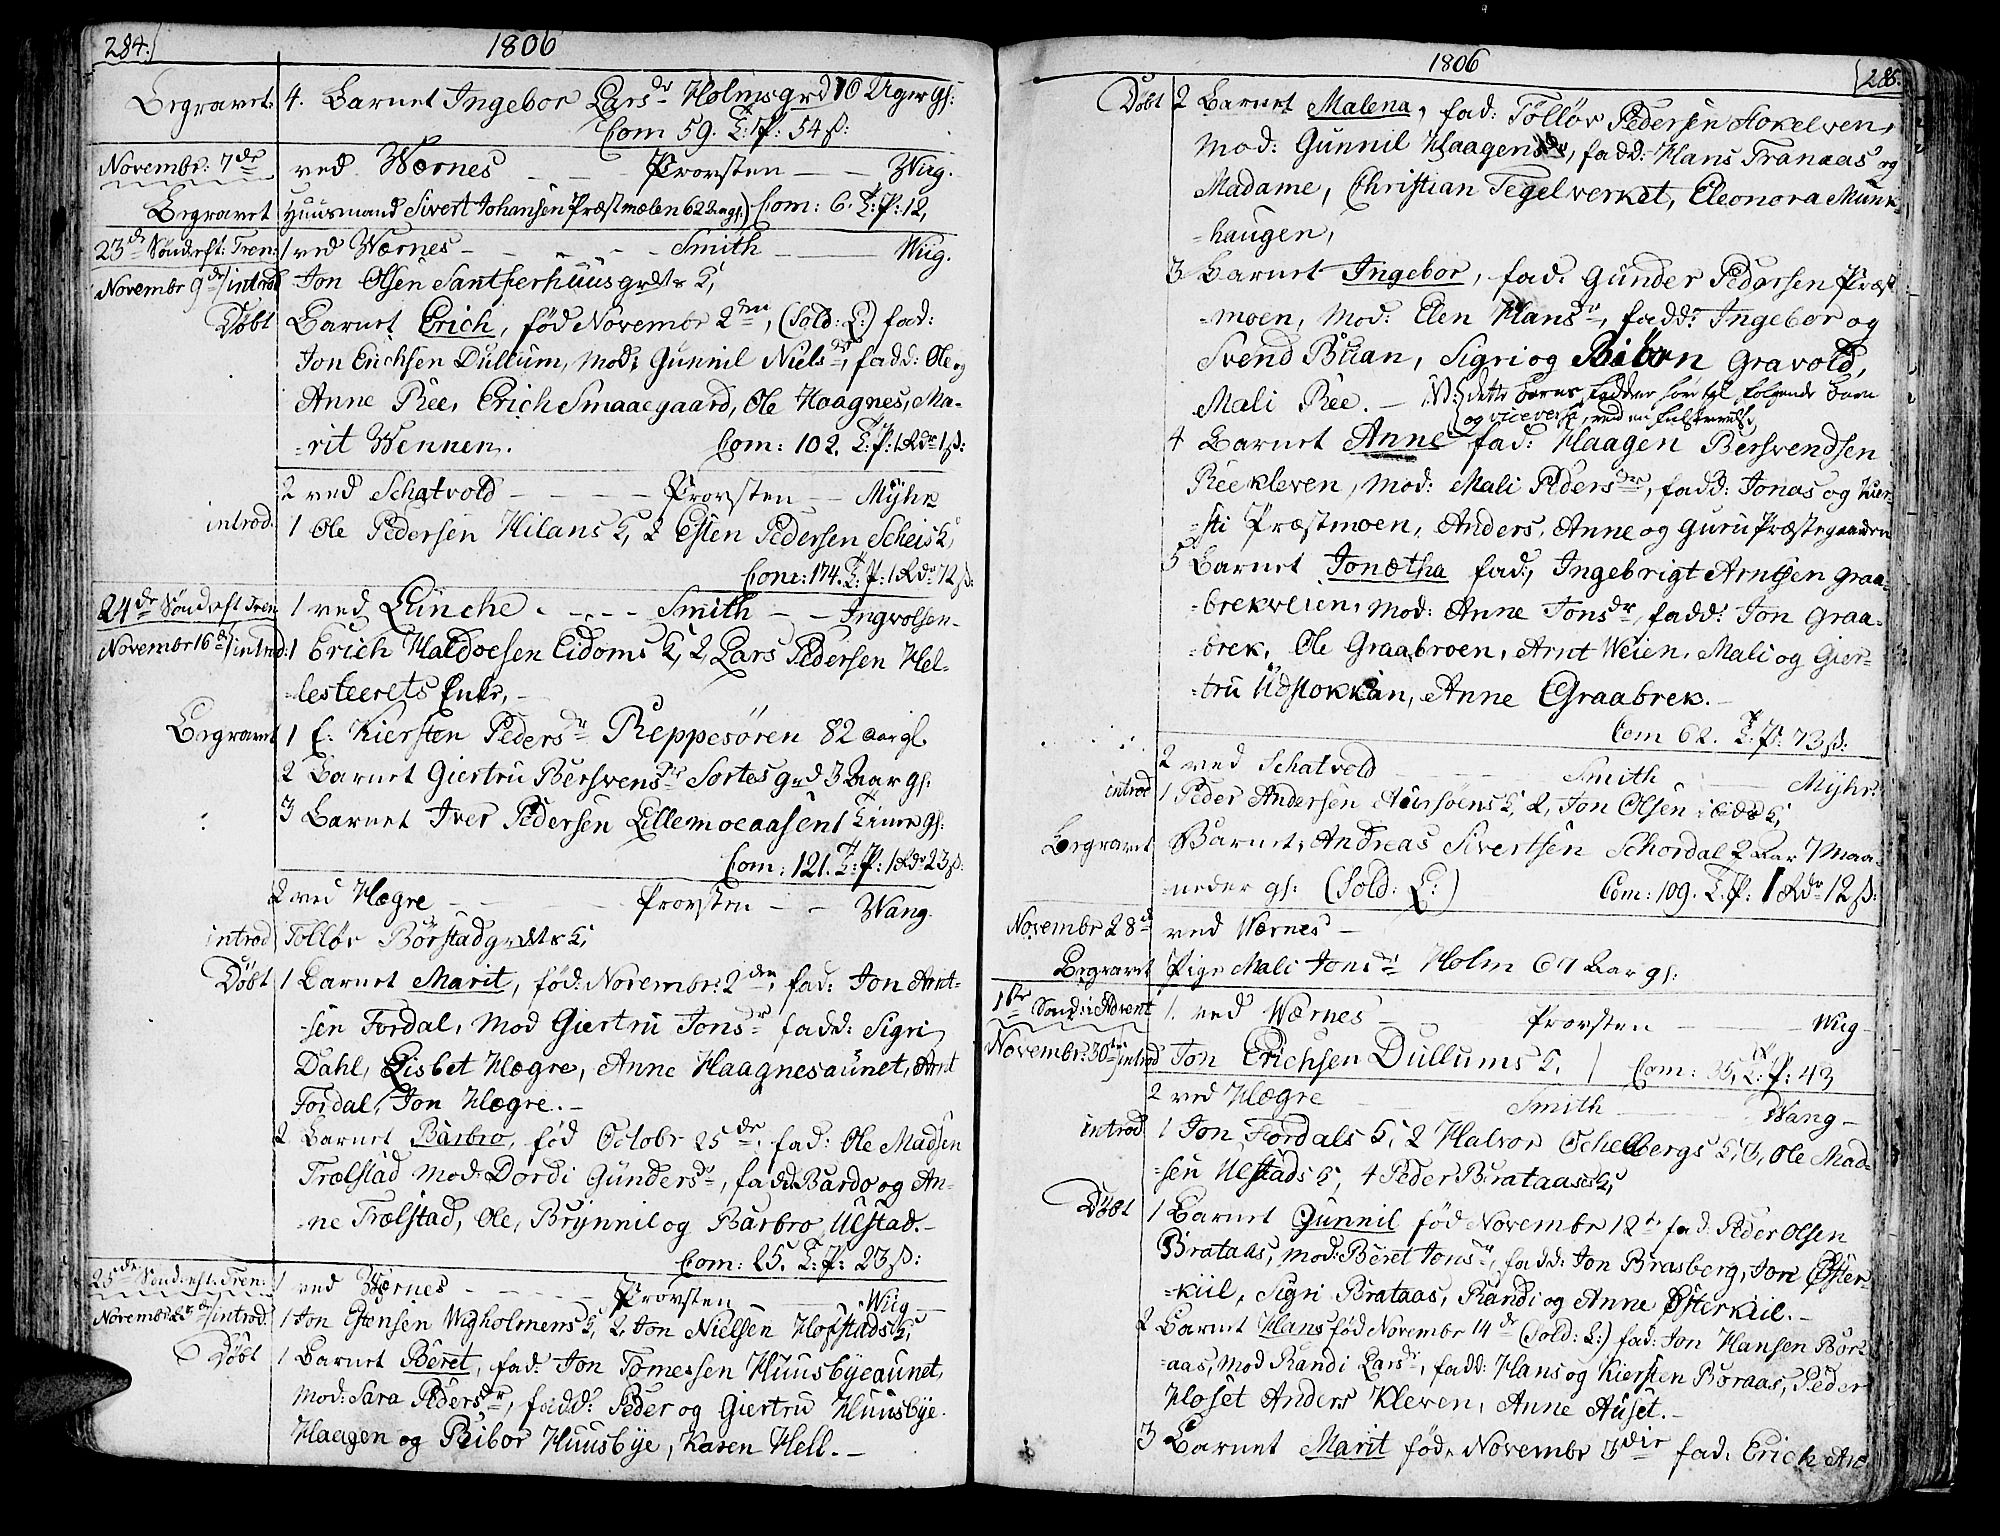 284.
1806
Begravet. 4. Barnet Ingebor Larsdr Holmsgrd 10 Uger gl:
Com 59. T: P: 54 ß:
Novembr: 7de ved Wærnes - - - Provsten - - Wiig.
Begravet Huusmand Sivert Johansen Præstmælen 62 Aar gl:) Com: 6. T: P: 12,
23de Sønd: eft: Tren: 1 ved Wærnes - - - Smith - Wiig.
Novembr 9de introd Jon Olsen K,
Døbt Barnet Erich, fød Novembr 2den, (Sold: L:) fad:
Jon Erichsen Dullum, mod: Gunnil Nielsdr, fadd: Ole og
Anne Ree, Erich Smaaegaard, Ole Haagnes, Ma-
-rit Wennen. Com: 102. T: P: 1 Rdr 1 ß:
2 ved Schatvold - - - - Provsten - - Mÿhr
introd: 1 Ole Pedersen Hilans K, 2 Esten Pedersen Scheis K,
Com: 174. T: P: 1 Rdr 72 ß:
24de Sønd: eft Tren 1 ved Lünche - - - - Smith - - Ingvolsen-
Novembr 16de introd: 1 Erich Haldoesen Eidoms K, 2 Lars Pedersen Hel-
-lesteerets Enke, -
Begravet 1 E: Kiersten Pedersdr Reppesören 82 Aar gl
2 Barnet Giertru Bersvensdr Sortesgrd 3 Aar gl:
3 Barnet Iver Pedersen Lillemoeaasen 1 Time gl:
Com: 121. T: P: 1 Rdr 23 ß:
2 ved Hægre - - - Provsten - - Wang.
introd Tollöv Börstad K,
Døbt 1 Barnet Marit, fød: Novembr: 2den, fad: Jon Arnt-
-sen Fordal, Mod Giertru Jonsdr fadd: Sigri
Dahl, Lisbet Hægre, Anne Haagnesaunet, Arnt
Fordal, Jon Hægre. -
2 Barnet Barbro, fød Octobr 25de, fad: Ole Madsen
Trælstad mod: Dordi Gundersdr, fadd: Bardo og An-
-ne Trælstad, Ole, Brynnil og Barbro Ulstad. -
Com: 25. T: P: 23 ß:
25de Sønd: eft: Tren: 1 ved Wærnes - - - - - Provsten - Wiig -
Novembr 23de introd: 1 Jon Estensen Wigholmens K, 2, Jon Nielsen Hofstads K,
Døbt 1 Barnet Beret, fad: Jon Tomessen Huusbyeaunet,
mod: Sara Pedersdr, fadd: Peder og Giertru Huusbye
Haagen og Ribor Huusbye, Karen Hell. -
1806
285.
Døbt 2 Barnet Malena, fad: Tölløv Pedersen Stokelven,
Mod: Gunnil Haagensdr, fadd: Hans Tranaas og
Madame, Christian Tegelverket, Eleonora Munk-
-haugen,
3 Barnet Ingebor, fad: Gunder Pedersen Præst
-moen, Mod: Elen Hansdr, fadd: Ingebor og
Svend Buan, Sigri og Gravold,
Mali Ree. - NB: dette Barns Fadder hör til følgende Barn
og viceversa, ved en
4 Barnet Anne fad: Haagen Bersvendsen
Reekleven, Mod: Mali Pedersdr, fadd: Jonas og Kier-
-sti Præstmoen, Anders, Anne og Guru Præstegaarden
5 Barnet Jonetha fad:, Ingebrigt Arntsen Graa-
-brekveien, Mod: Anne Jonsdr, fadd: Jon Graa-
-brek, Ole Graabroen, Arnt Weien, Mali og Gier-
-tru Udstokkan, Anne Graabrek. -
Com 62. T: P: 73 ß:
2 ved Schatvold - - - Smith - - Mÿhr:
introd 1 Peder Andersen K, 2, Jon Olsen K,
Begravet Barnet, Andreas Sivertsen Schordal 2 Aar 7 Maa-
-neder gl: (Sold: L:) Com: 109. T: P: 1 Rdr 12 ß:
Novembr 28de ved Wærnes -
Begravet Pige Mali Jonsdr Holm 67 Aar gl:
1ste Sønd: i Advent 1. ved Wærnes - Provsten - Wiig -
Novembr: 30te introd Jon Erichsen Dullums K. Com: 35, T: P: 43
2 ved Hægre - Smith - Wang -
introd 1 Jon Fordals K, 2 Halvor Schelbergs K, 3, Ole Mad-
-sen Ulstads K, 4 Peder Brataases K,
Døbt 1 Barnet Gunnil fød Novembr 12te fad: Peder Olsen
Brataas, mod: Beret Jonsdr, fadd: Jon Brasberg, Jon Øster-
-kiil, Sigri Brataas, Randi og Anne Østerkiil. -
2 Barnet Hans fød Novembr 14de (Sold: L:) fad: Jon Hansen Bor-
-aas, Mod Randi Larsdr, fadd: Hans og Kiersten Boraas, Peder
Hloset Anders Kleven, Anne Auset. -
3 Barnet Marit fød, Novembr 3die fad: Erich